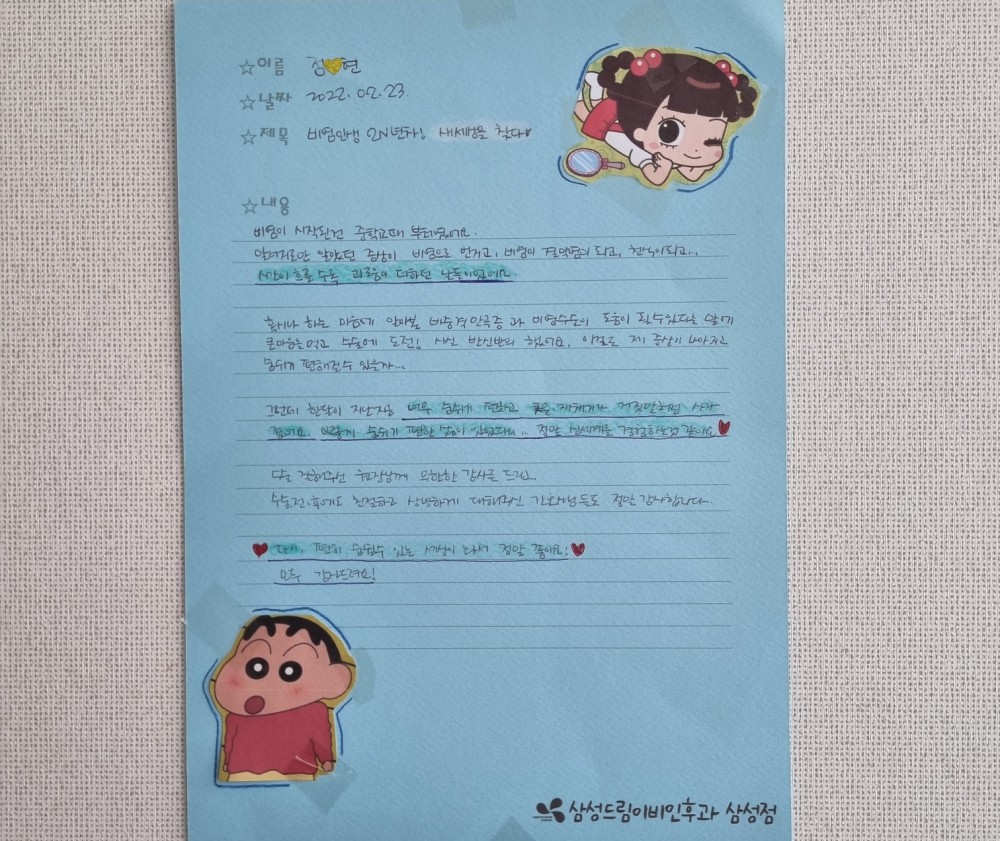 ☆이름 정💛현
☆날짜 2022.02.23.
☆제목 비염인생 2N년차! 새세상을 찾다♥
☆내용
비염이 시작된건 중학교때 부터였어요.
알레르기로만 알았던 증상이 비염으로 번지고, 비염이 결막염이 되고, 천식이되고..
시간이 흐를수록 괴로움이 더하던 날들이었어요.
혹시나 하는 마음에 알아본 비중격만곡증과 비염수술이 도움이 될수있다는 말에
큰마음먹고 수술에 도전!! 사실 반신반의 했었어요, 이걸로 제 증상이 나아지고
숨쉬기 편해질수 있을까...
그런데 한달이 지난지금 너무 숨쉬기 편하고 콧물, 재채기가 거짓말처럼 사라
졌어요. 이렇게 숨쉬기 편한 날이 있었다니... 정말 신세계를 경험하는것 같아요♥
수술 잘해주신 원장님께 무한한 감사를 드리고
수술전·후에도 친절하고 상냥하게 대해주신 간호사님들도 정말 감사합니다.
♥ 다시, 편히 숨쉴수 있는 세상이 와서 정말 좋아요! ♥
모두 감사드려요!
삼성드림이비인후과 삼성점